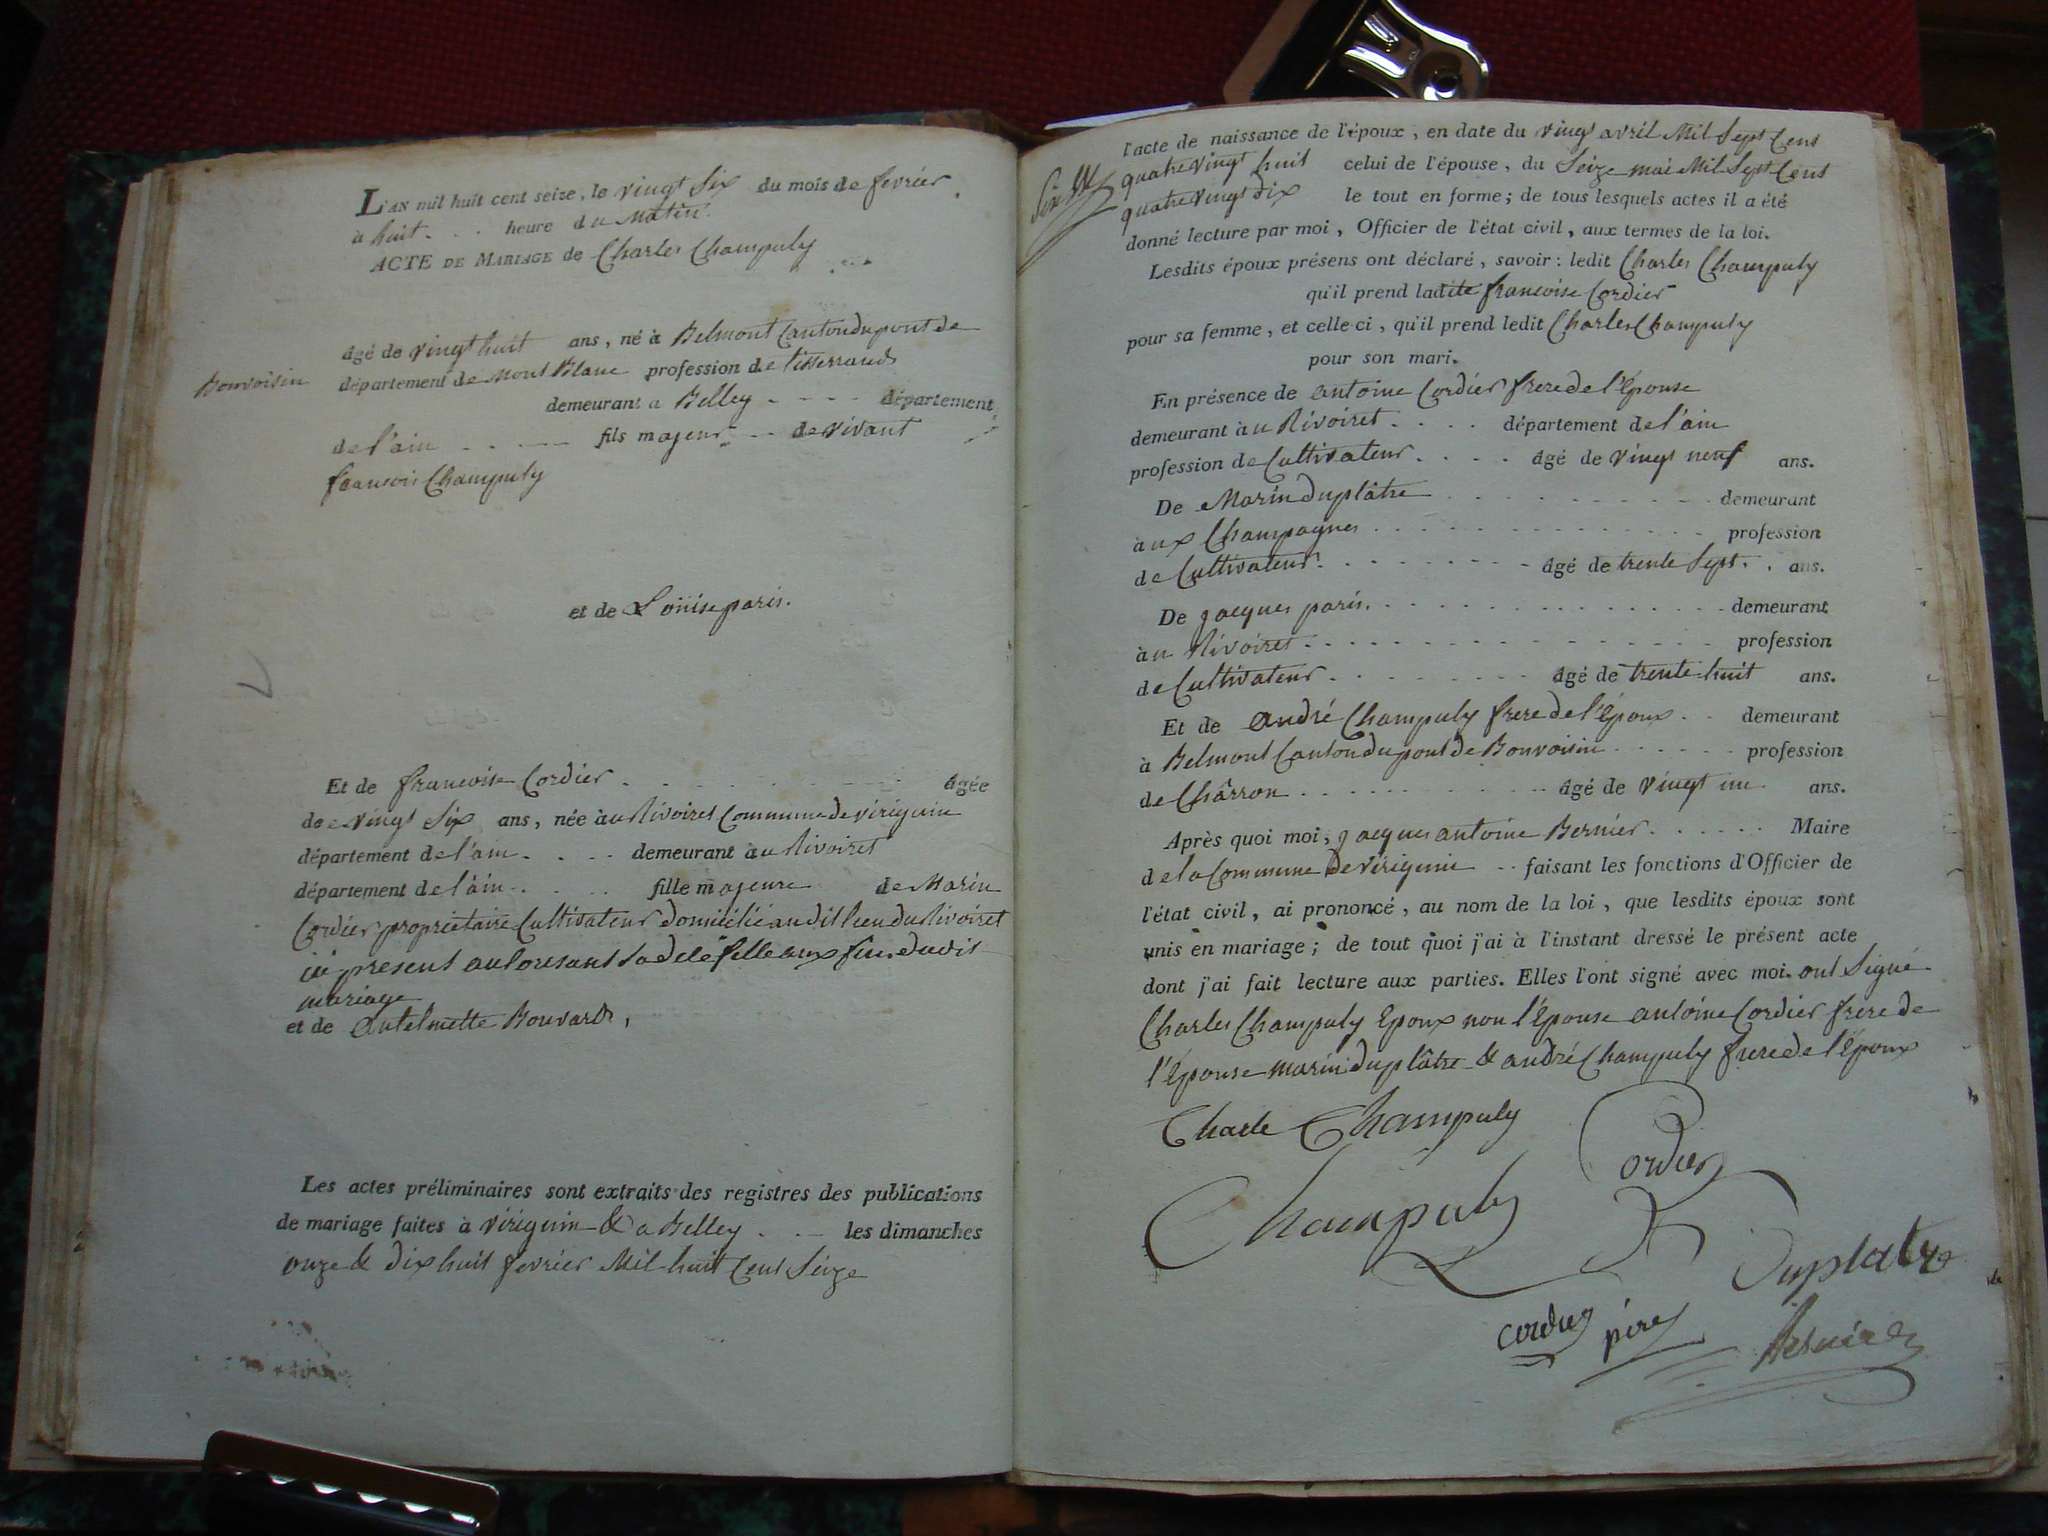 L'an mil huit cent seize, le vingt Six du mois de fevrier
à huit . . . heure du Matin.
ACTE DE MARIAGE de Charles Champuly
agé de vingt huit ans, né à Belmont Canton du pont de
Bonvoisin département de Mont Blanc profession de tisserand
demeurant a Belley - - - - département
de l'ain fils majeur de vivant
francois Champuly
et de Loüise paris.
Et de francoise Cordier . agée
de vingt Six ans, née àu Rivoiret Commune de virignin
département de l'ain . . . . demeurant àu Rivoiret
département de l'ain . . . . fille majeure de Marin
Cordier propriétaire Cultivateur domicilié audit lieu du Rivoiret
ici present autorisant sadite fille aux fins dudit
mariage
et de antelmette Bouvard,
Les actes préliminaires sont extraits des registres des publications
de mariage faites à virignin & a Belley . . - les dimanches
onze & dix huit fevrier Mil huit Cent Seize
l'acte de naissance de l'époux, en date du vingt avril Mil Sept Cent
quatre vingt huit celui de l'épouse, du Seize mai Mil Sept Cent
quatre vingt dix le tout en forme; de tous lesquels actes il a été
donné lecture par moi, Officier de l'état civil, aux termes de la loi.
Lesdits époux présens ont déclaré, savoir: ledit Charles Champuly
qu'il prend ladite francoise Cordier
pour sa femme, et celle-ci, qu'il prend ledit Charles Champuly
pour son mari.
En présence de antoine Cordier frere de l'Épouse
demeurant àu Rivoiret . . . . département de l'ain
profession de Cultivateur . . . . agé de vingt neuf ans.
De Marin Duplâtre demeurant
àux Champagnes profession
de Cultivateur agé de trente Sept . . ans.
De jacques paris. demeurant
àu Rivoiret profession
de Cultivateur agé de trente-huit ans.
Et de andré Champuly frere de l'Époux . . demeurant
à Belmont Canton du pont de Bonvoisin profession
de Chârron agé de vingt un ans.
Après quoi moi, jacques antoine Bernier . . . . . . Maire
de la Commune de virignin faisant les fonctions d'Officier de
l'état civil, ai prononcé, au nom de la loi, que lesdits époux sont
unis en mariage; de tout quoi j'ai à l'instant dressé le présent acte
dont j'ai fait lecture aux parties. Elles l'ont signé avec moi. ont Signé
Charles Champuly Epoux non l'Épouse antoine Cordier frere de
l'Épouse marin duplâtre & andré Champuly frere de l'Époux
Charle Champuly
Cordier
Champuly
Duplatre
cordier père
Bernier